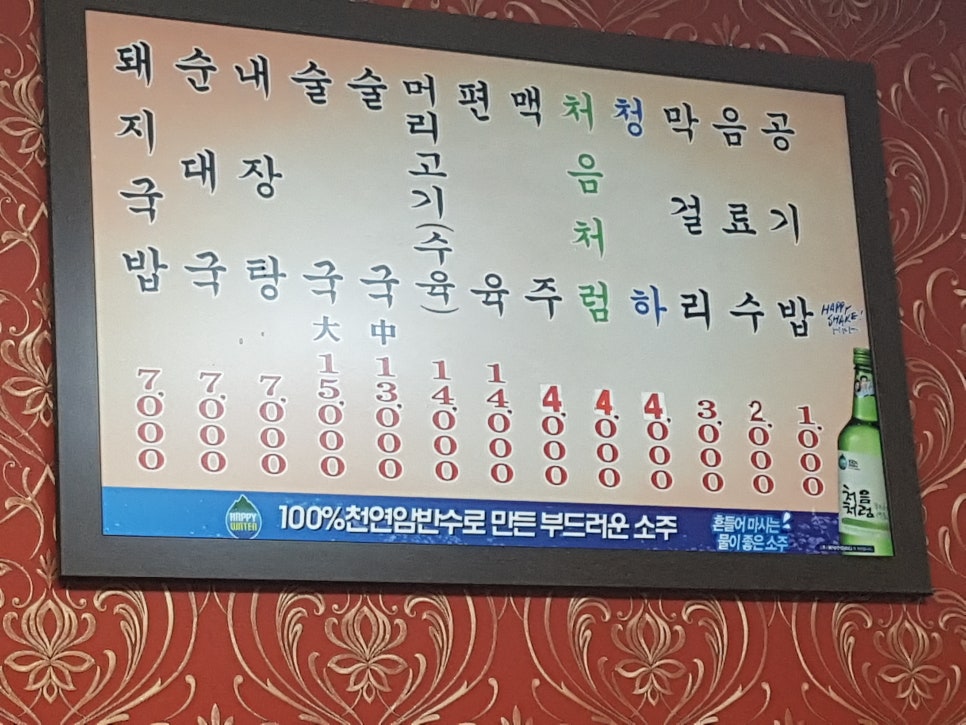 돼지국밥 7.000
순대국 7.000
내장탕 7.000
술국 大 15.000
술국 中 13.000
머리고기(수육) 14.000
편육 14.000
맥주 4.000
처음처럼 4.000
청하 4.000
막걸리 3.000
음료수 2.000
공기밥 1.000
HAPPY SHAKE!
처음처럼
HAPPY WATER
100%천연암반수로 만든 부드러운 소주
흔들어 마시는
물이 좋은 소주